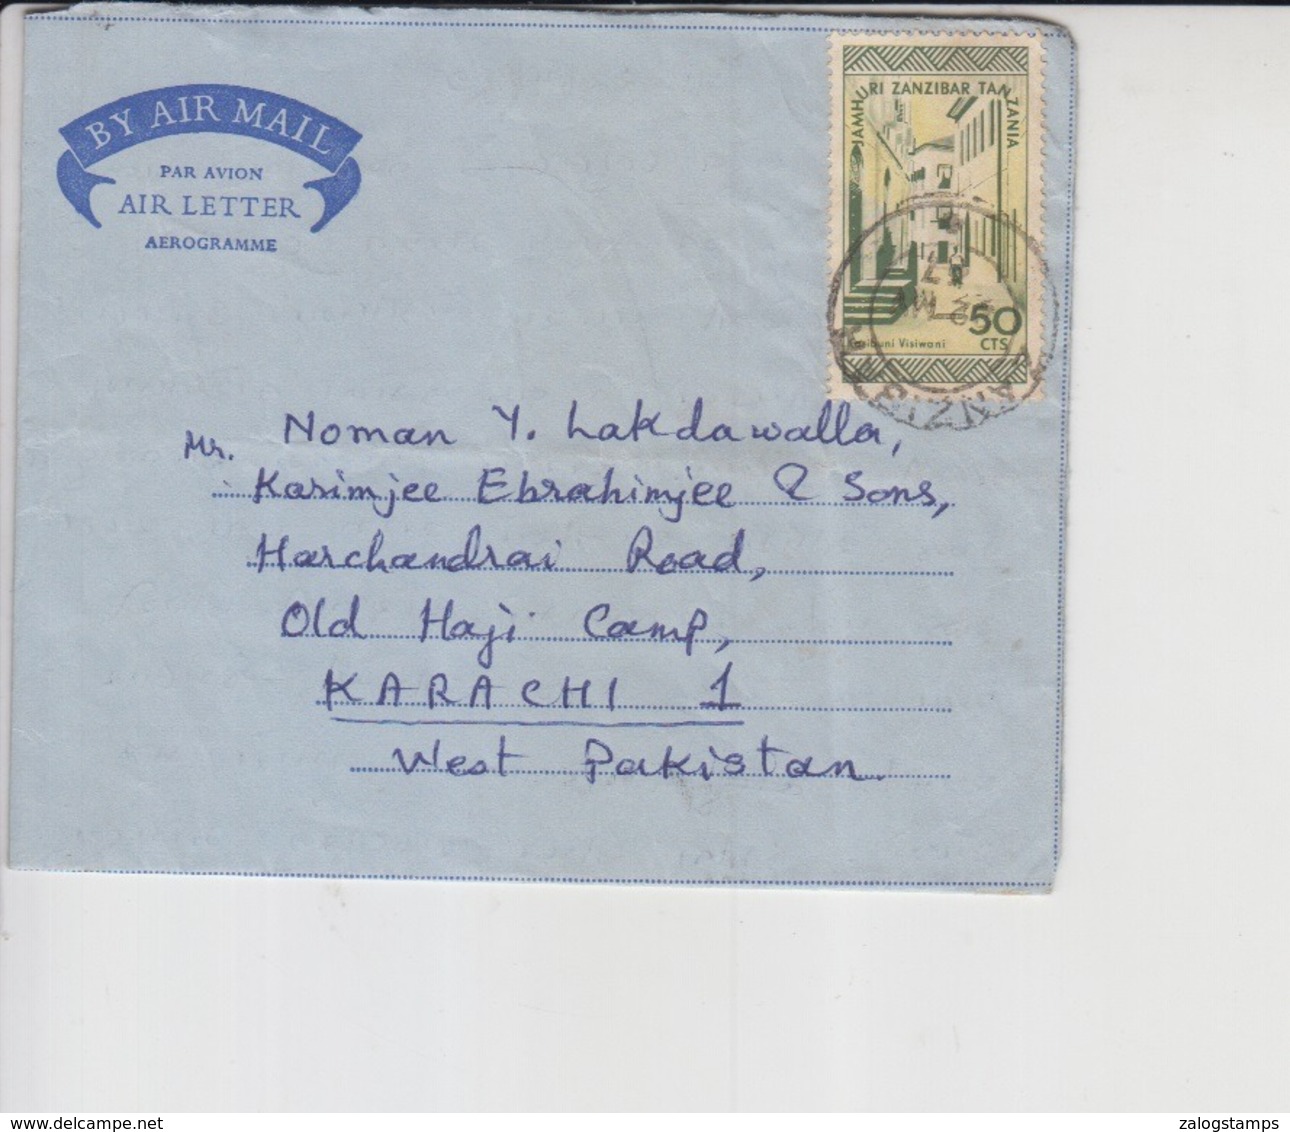 BY AIR MAIL
PAR AVION
AIR LETTER
AEROGRAMME
JAMHURI ZANZIBAR TANZANIA
50
CTS
Karibuni Visiwani
ZANZIBAR
Mr. Noman Y. Lakdawalla,
Karimjee Ebrahimjee & Sons,
Harchandrai Road,
Old Haji Camp,
KARACHI 1
West Pakistan.
www.delcampe.net
zalogstamps